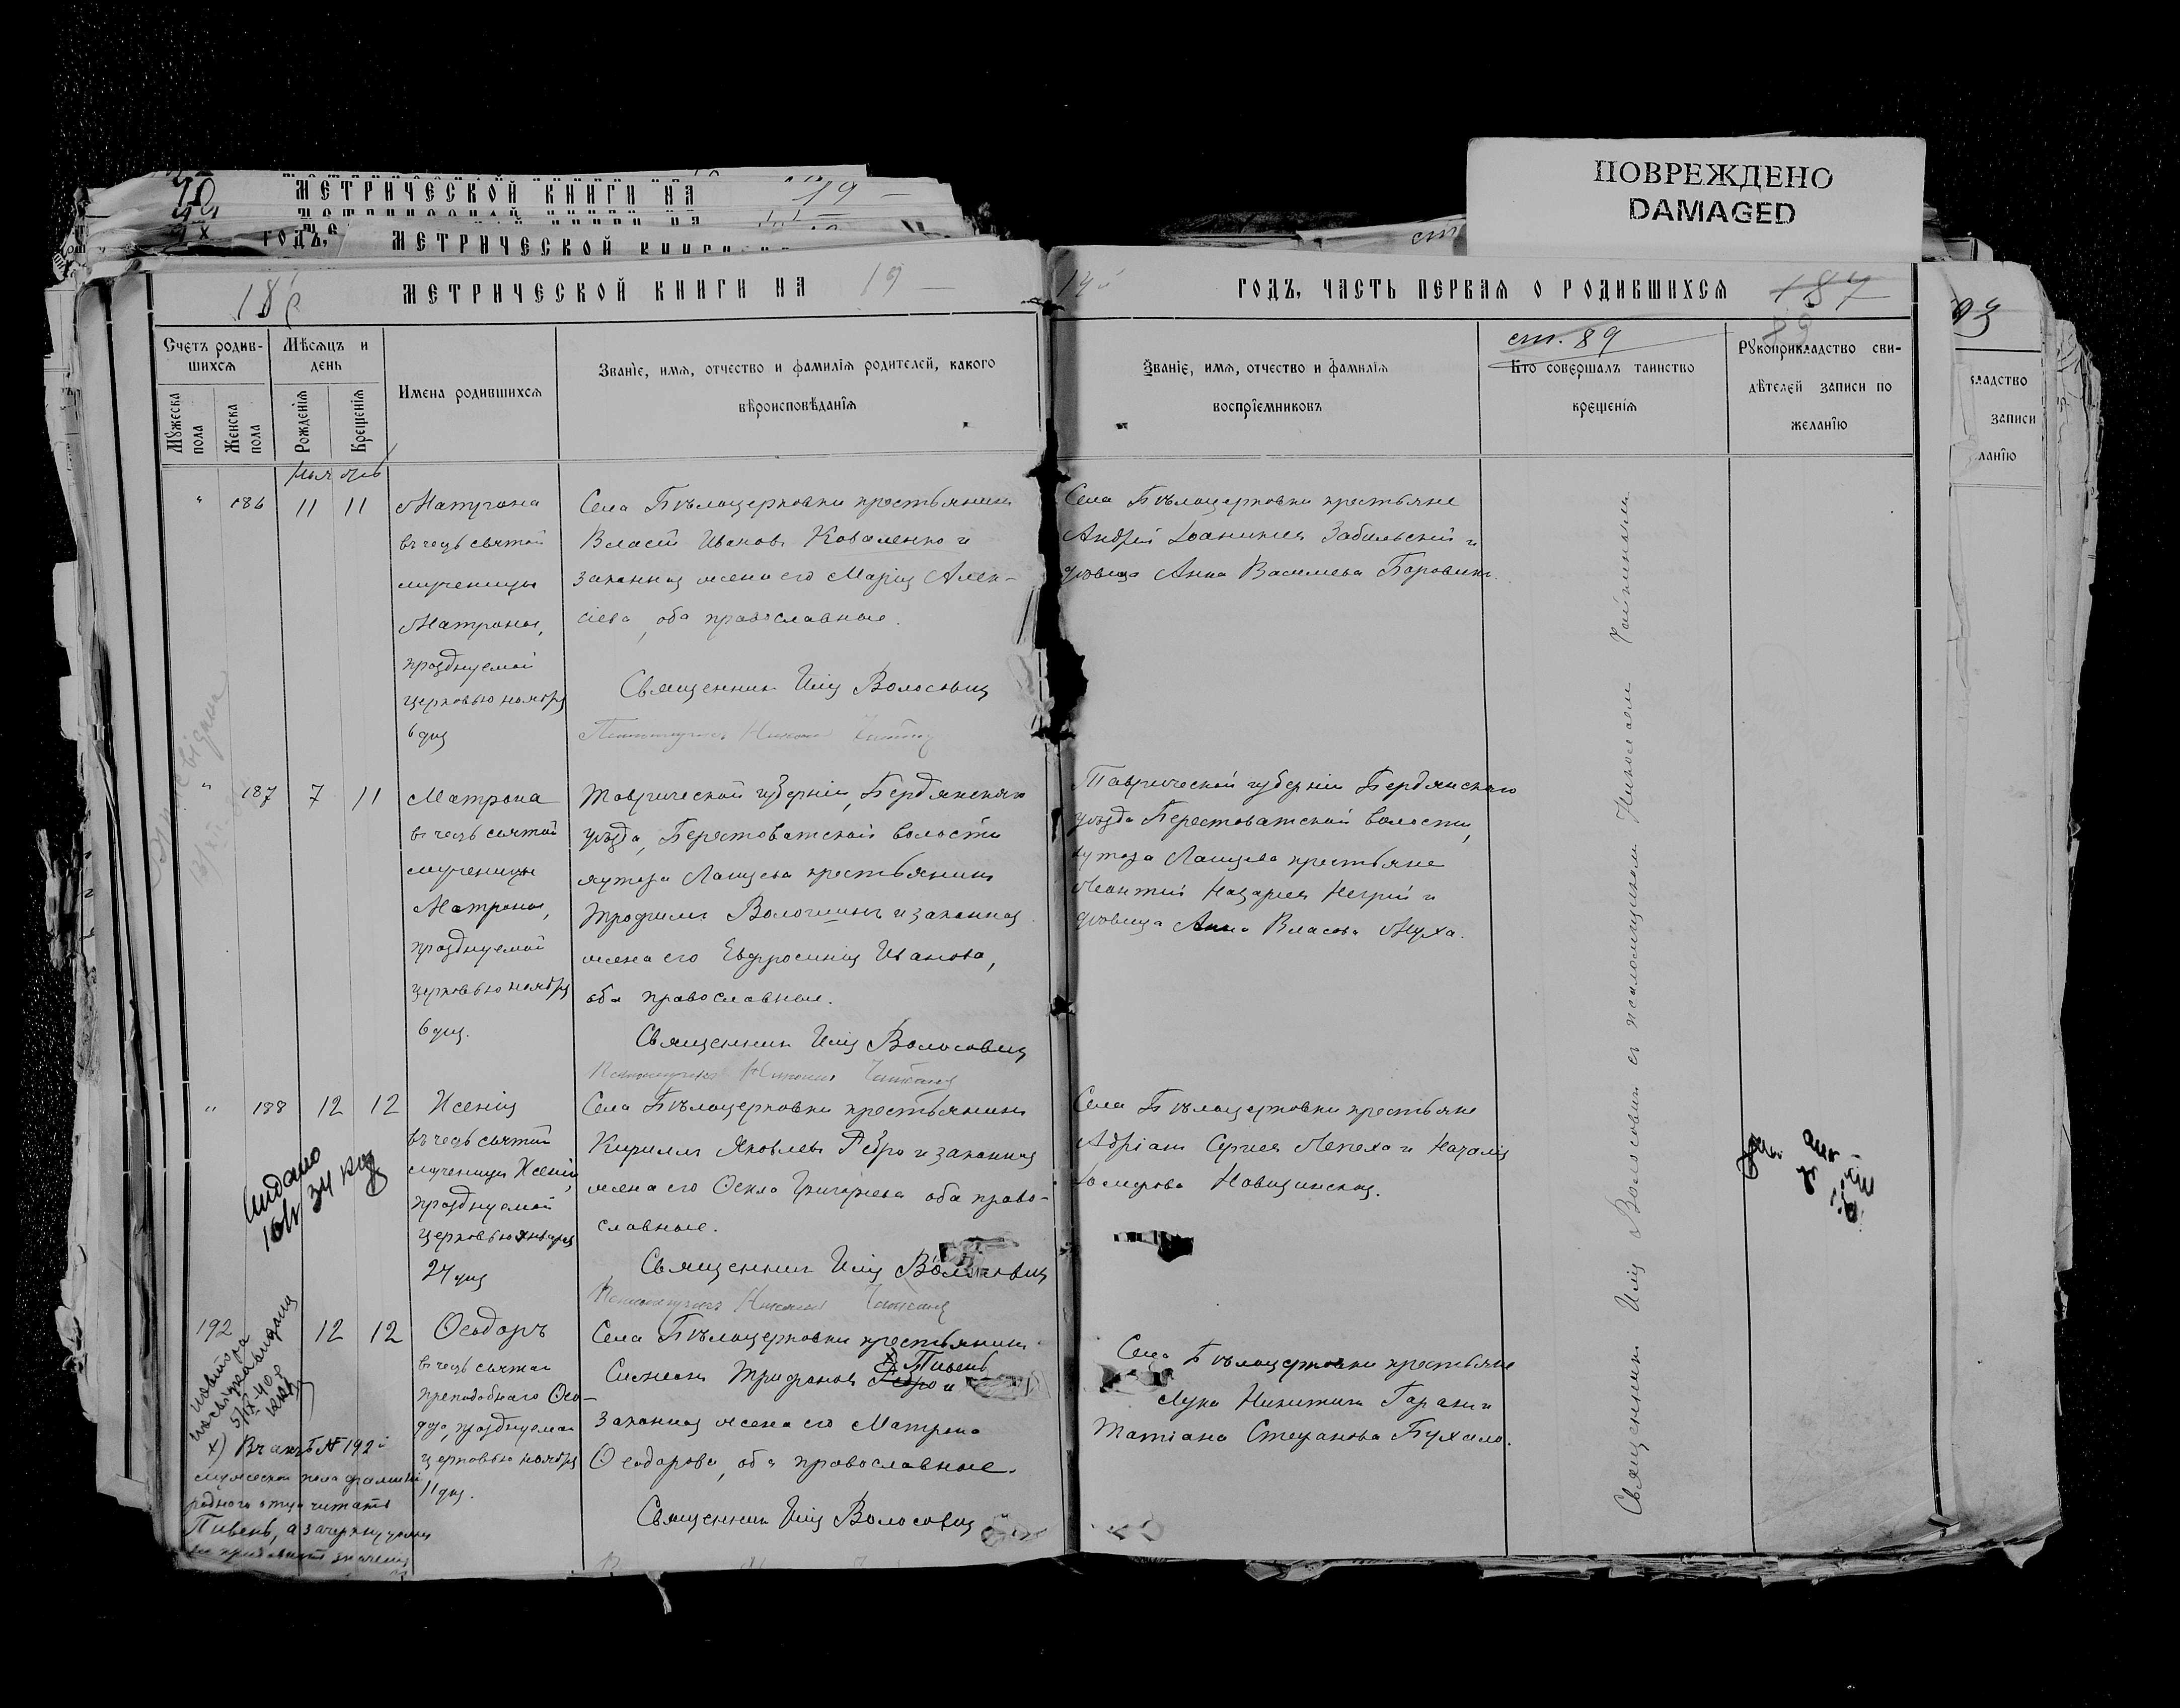 ПОВРЕЖДЕНО
DAMAGED
МЕТРИЧЕСКОЙ КНИГИ НА 19
ГОДЪ,
МЕТРИЧЕСКОЙ КНИГИ
186 МЕТРИЧЕСКОЙ КНИГИ НА 19
ГОДЪ, ЧАСТЬ ПЕРВАЯ О РОДИВШИХСЯ 187
Счетъ родив-
шихся
Мужеска пола
Женска пола
Мѣсяцъ и
день
Рожденія
Крещенія
Имена родившихся
Званіе, имя, отчество и фамилія родителей, какого
вѣроисповѣданія
Званіе, имя, отчество и фамилія
воспріемниковъ
ст. 89
Кто совершалъ таинство
крещенія
Рукоприкладство сви-
дѣтелей записи по
желанію
владство
записи
ланію
Ноябрь
" 186 11 11
Матрона
въ честь святой
мученицы
Матроны,
празднуемой
церковью ноября
6 дня
Села Бѣлоцерковки крестьянинъ
Власій Ивановъ Коваленко и
законная жена его Марія Алек-
сіева, оба православные.
Священникъ Илія Волосовичъ
Псаломщикъ Николай
Села Бѣлоцерковки крестьяне
Андрей Іоанникіевъ Забильскій и
дѣвица Анна Васильева Боровикъ.
" 187 7 11
Матрона
въ честь святой
мученицы
Матроны,
празднуемой
церковью ноября
6 дня.
Таврической губерніи, Бердянскаго
уѣзда, Берестоватской волости
хутора Ланцева крестьянинъ
Трофимъ Волошинъ и законная
жена его Евфросинія Иванова,
оба православные.
Священникъ Илія Волосовичъ
Псаломщикъ Николай
Таврической губерніи Бердянскаго
уѣзда Берестоватской волости,
хутора Ланцева крестьяне
Леонтій Назаріевъ Негрій и
дѣвица Анна Власова Муха.
" 188 12 12
Ксенія
въ честь святой
мученицы Ксеніи,
празднуемой
церковью января
24 дня
Села Бѣлоцерковки крестьянинъ
Кириллъ Яковлевъ Ребро и законная
жена его Ѳекла Григорьева оба право-
славные.
Священникъ Илія Волосовичъ
Псаломщикъ Николай
Села Бѣлоцерковки крестьяне
Адріанъ Сергіевъ Лепеха и Наталія
Новицинская.
192 12 12
Ѳеодоръ
въ честь святаго
преподобнаго Ѳео-
дора, празднуемаго
церковью ноября
11 дня.
Села Бѣлоцерковки крестьянинъ
x) Пивень
Трифоновъ Ребро и
законная жена его Матрона
Ѳеодорова, оба православные.
Священникъ Илія Волосовичъ
Села Бѣлоцерковки крестьяне
Лука Никитинъ Гаранъ и
Татіана Стефанова Бухало.
x) Въ актѣ № 192
мужеской пола фамилію
роднаго отца читать
Пивень, а зачеркнутому
не придавать значенія
Священникъ Илія Волосовичъ съ псаломщикомъ Николаемъ